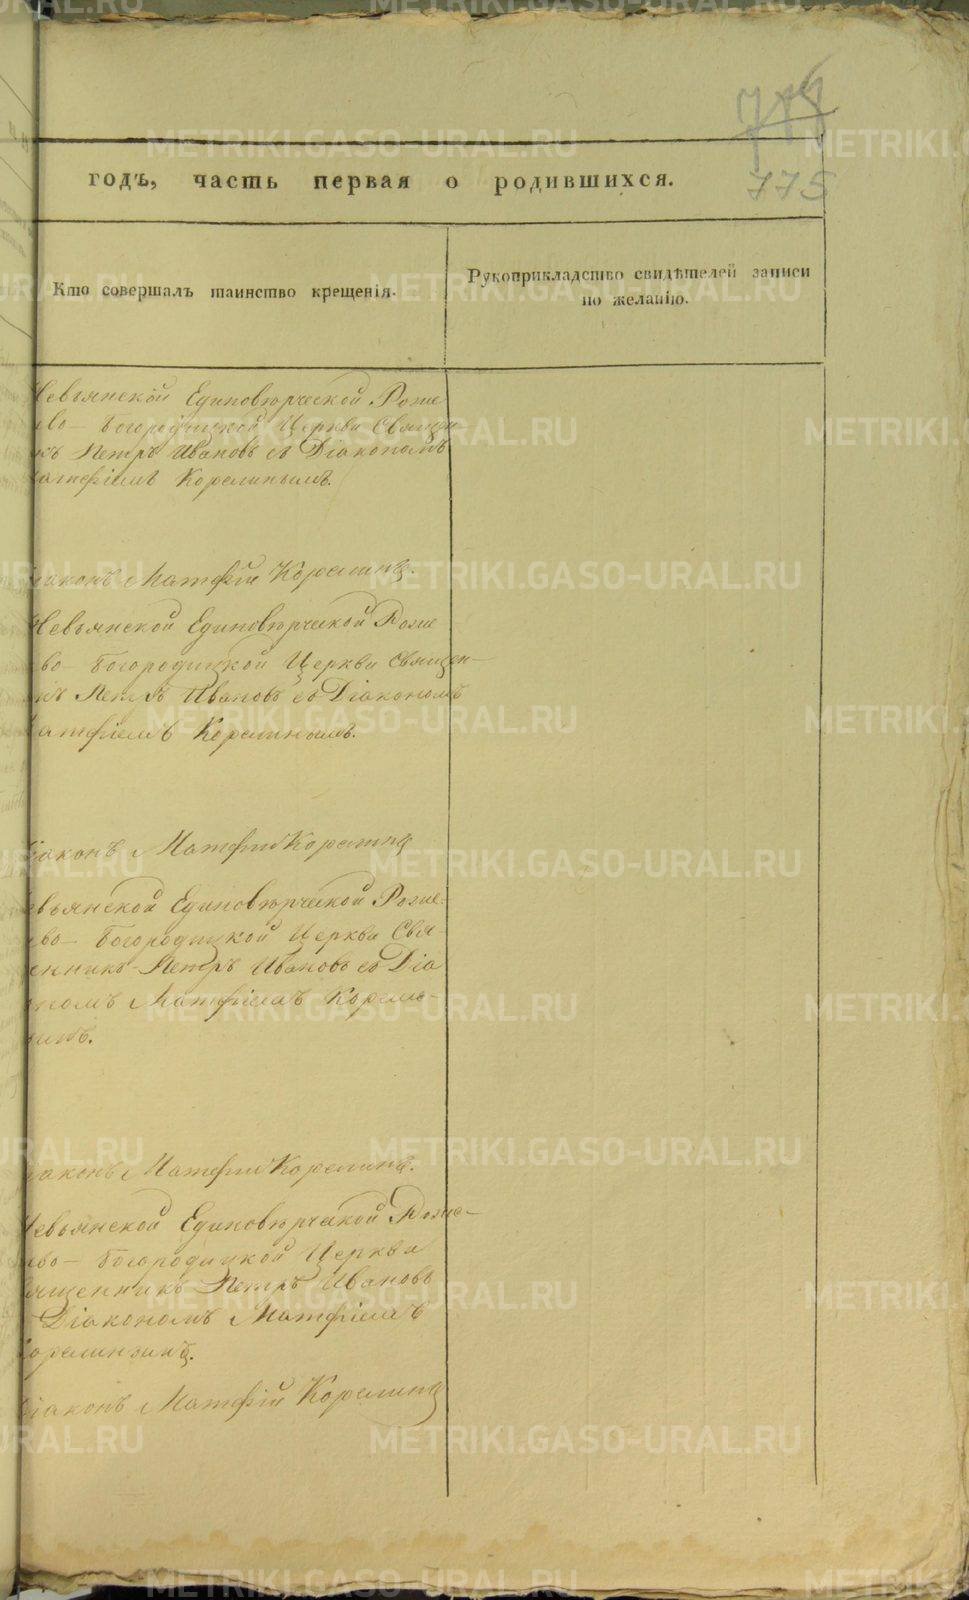 775
годъ, часть первая о родившихся.
Кто совершалъ таинство крещенія.
Рукоприкладство свидѣтелей записи
по желанію.
Невьянской Единовѣрческой Роже
ево - Богородицкой Церкви Священ-
къ Петръ Ивановъ съ Діакономъ
атфіемъ Корелинымъ.
іаконъ Матфій Корелинъ.
Невьянской Единовѣрческой Роже
ево - Богородицкой Церкви Священ-
къ Петръ Ивановъ съ Діакономъ
атфіемъ Корелинымъ.
іаконъ Матфій Корелинъ
евьянской Единовѣрческой Роже-
ево - Богородицкой Церкви Свя
енникъ Петръ Ивановъ съ Діа
номъ Матфіемъ Корели-
іаконъ Матфій Корелинъ.
Невьянской Единовѣрческой Роже-
ево - Богородицкой Церкви
ященникъ Петръ Ивановъ
Діакономъ Матфіемъ
іаконъ Матфій Корелинъ
METRIKI.GASO-URAL.RU